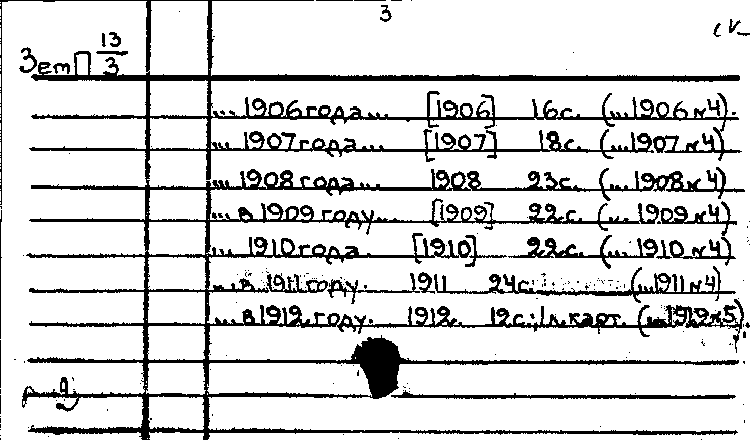 3
Зет П 13/3
... 1906 года... [1906] 16с. (... 1906 № 4).
... 1907 года... [1907] 18с. (... 1907 № 4)
... 1908 года... 1908 23с. (... 1908 № 4)
... в 1909 году... [1909] 22с. (... 1909 № 4)
... 1910 года. [1910] 22с. (... 1910 № 4)
... в 1911 году. 1911 24с. (... 1911 № 4)
... в 1912 году. 1912. 12с.; 1 л. карт. (... 1912 № 5).